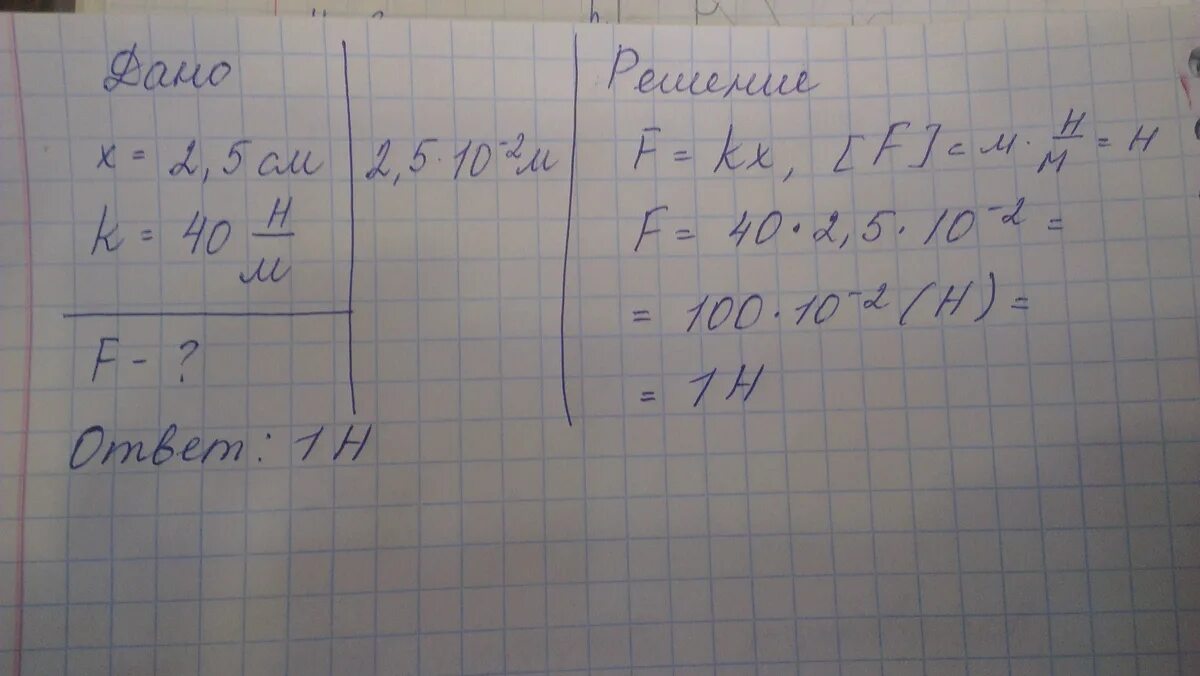 Дано
x = 2,5 см
k = 40 Н/м
F - ?
2,5·10⁻² м
Решение
F = kx, [F] = м · Н/м = Н
F = 40 · 2,5 · 10⁻² =
= 100 · 10⁻² (Н) =
= 1 Н
Ответ: 1 Н